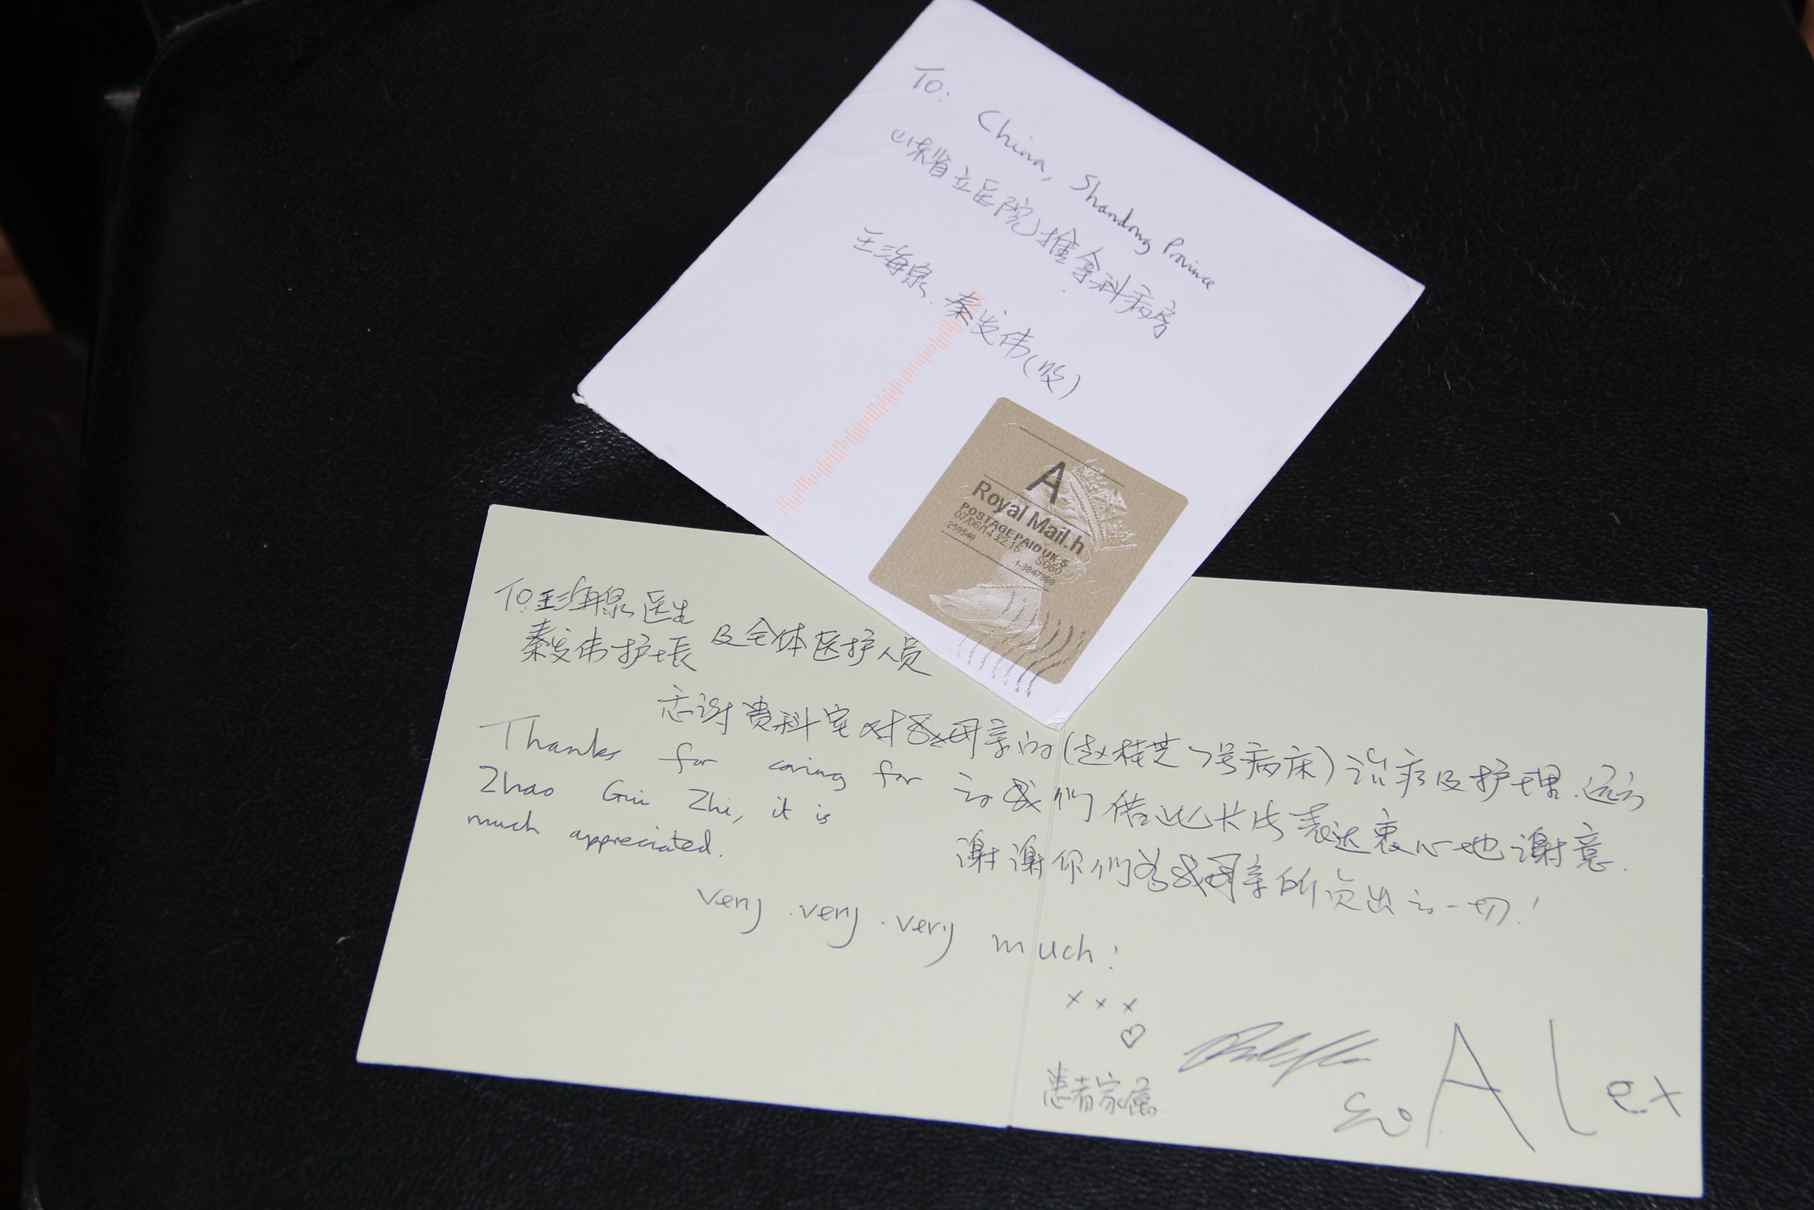 To:
China, Shandong Province
山东省立医院推拿科病房
王海泉. 秦发伟(收)
A
Royal Mail.h
POSTAGE PAID UK
07/06/14 12:15
SO60
1-3847
To: 王海泉医生
秦发伟护士长 及全体医护人员
志谢贵科室对我母亲的(赵桂芝 7号病床)治疗及护理.远方
的我们借此卡片表达衷心地谢意.
谢谢你们为我母亲所负出的一切!
Thanks for caring for
Zhao Gui Zhi, it is
much appreciated.
very . very . very much!
x x x
♡
患者家属
Alex